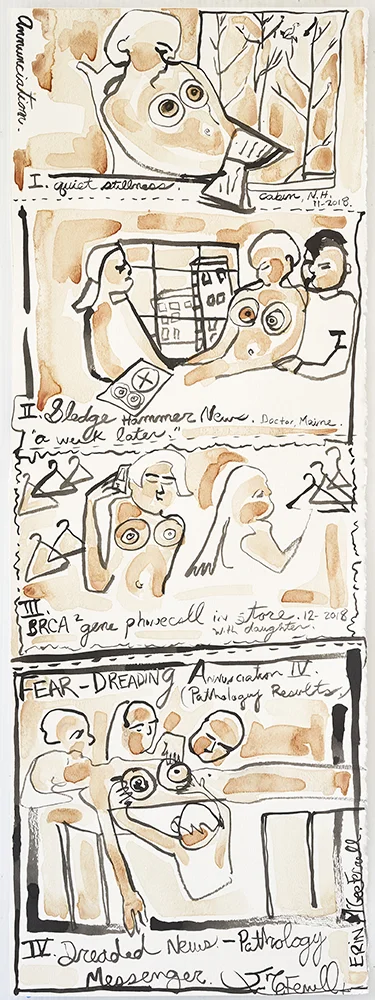 Annunciation.
I. quiet stillness.
Cabin, N.H.
11-2018.
II. Sledge Hammer News. Doctor, Maine.
"a week later."
III.
BRCA 2 gene phonecall in store. 12-2018
with daughter.
FEAR-DREADING Annunciation IV.
(Pathology Results)
IV. Dreaded News - Pathology
Messenger.
ERIN